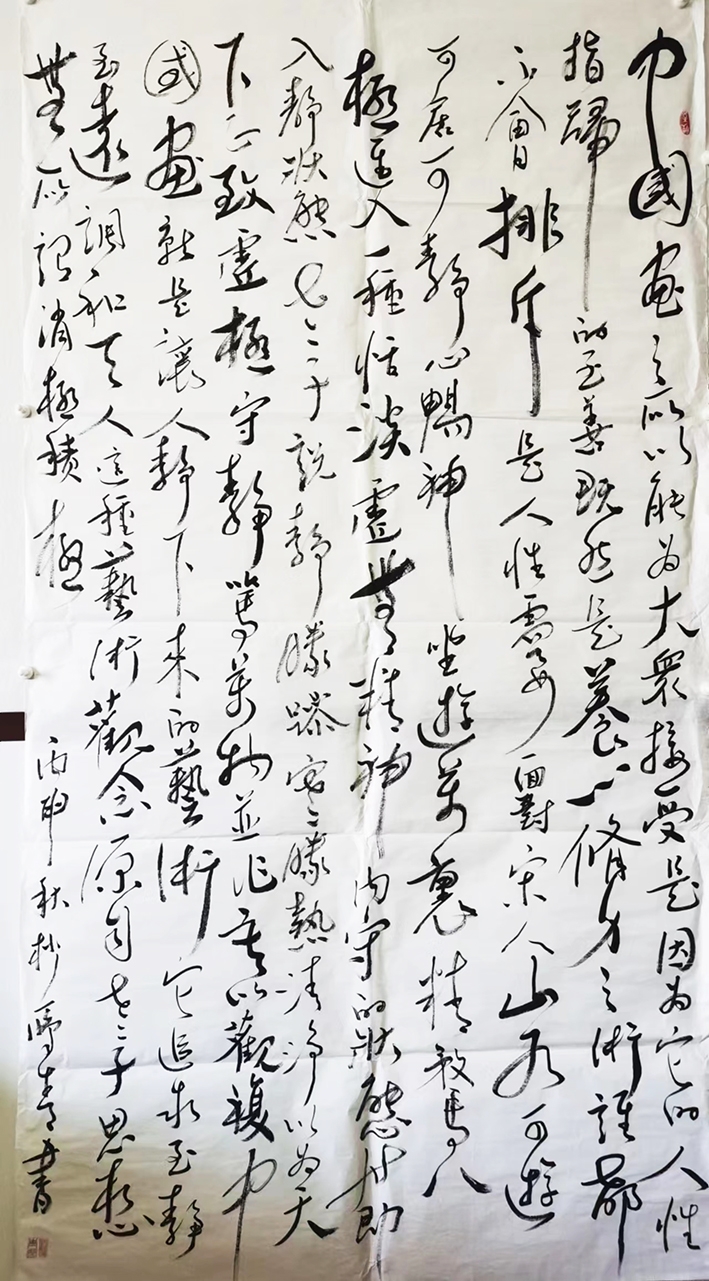 中國畫之所以能为大衆接受是因为它的人性
指歸的至善既然是養心修身之術誰都
不會排斥是人性需要面對宋人山水可遊
可居可靜心暢神坐遊萬裏精神八
極進入一種恬淡虛無精神内守的狀態也即
入靜狀態老子説靜勝躁寒勝熱清淨以为天
下正致虛極守靜篤萬物並作吾以觀復中
國畫就是讓人靜下來的藝術它追求至靜
至遠調和天人這種藝術觀念源自老子思想
無所謂消極積極
丙申秋杪 書